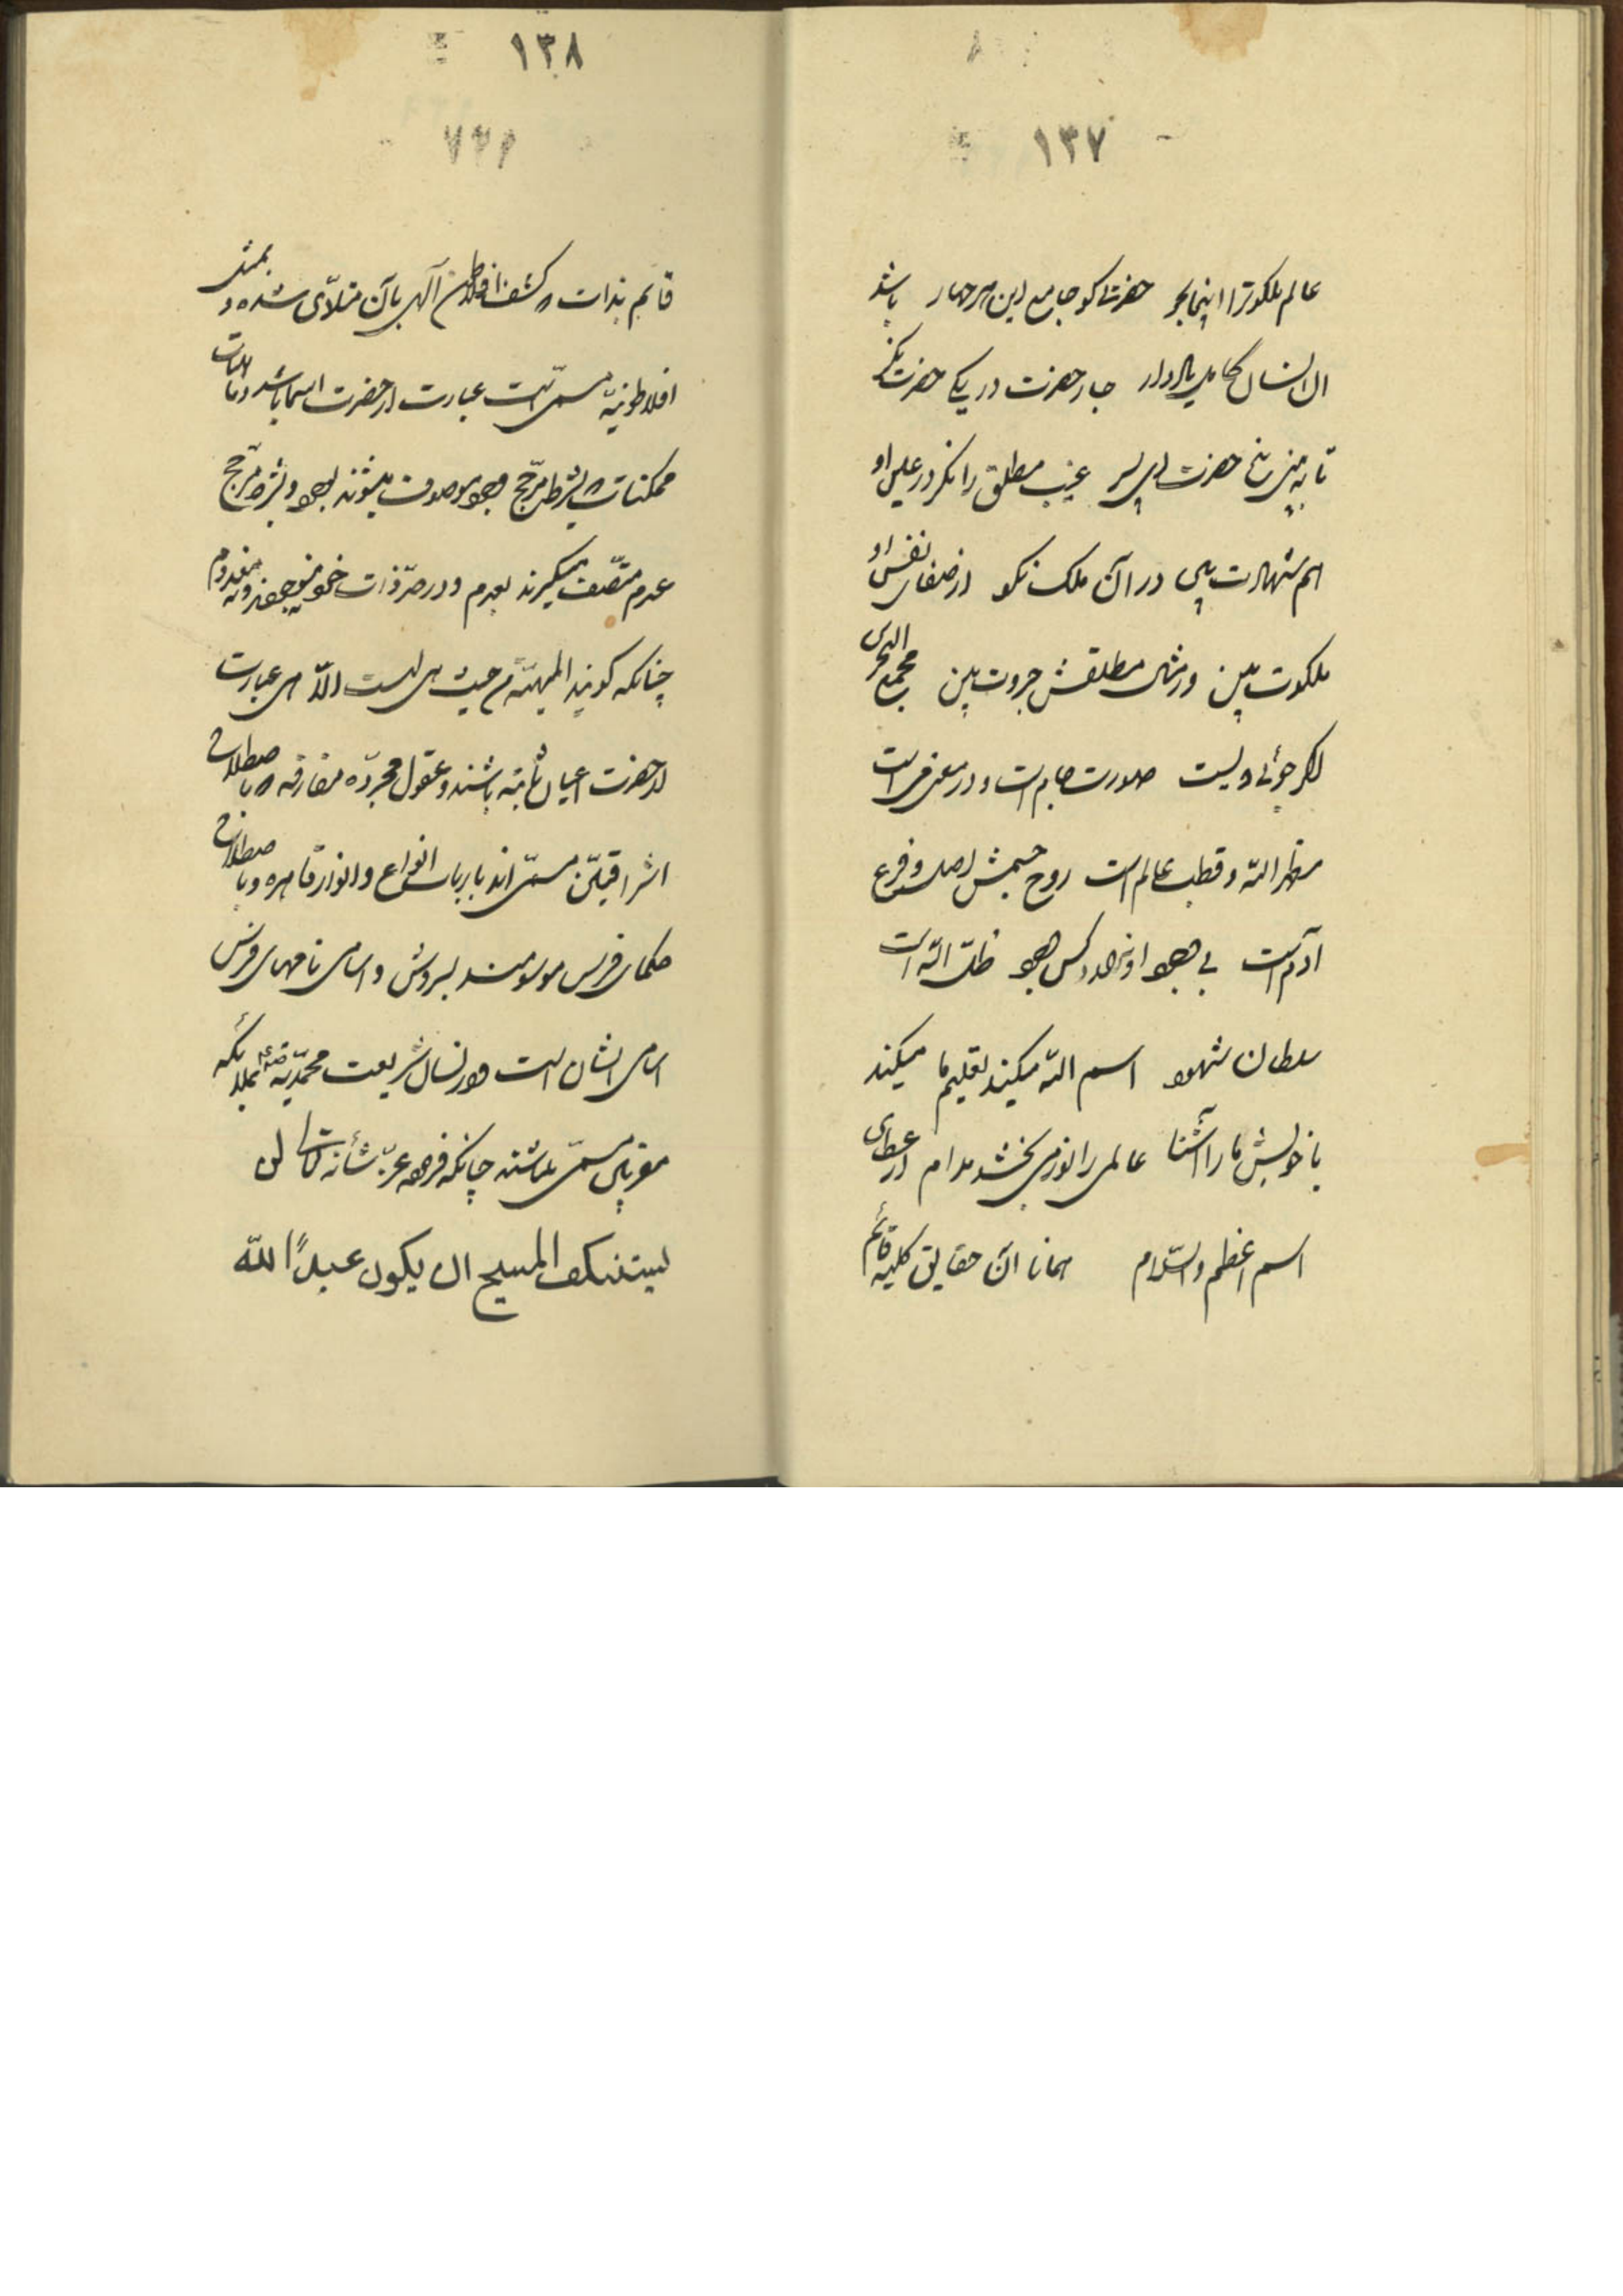 ١٣٧
عالم ملکوترا اینجا بجو حضرت کو جامع این هر چهار باشد
ان انسان کامل یاد دار چار حضرت در یکی حضرت نگر
تا به پنج حضرت ای پسر غیب مطلق را نگر در علم او
هم شهادت بین در آن ملک نکو از صفای نفس او
ملکوت بین در مثال مطلقش جبروت بین
صورت جام است و در معنی می است
مظهر الله و قطب عالم است روح جسمش اصل و فرع
آدم است بی وجود او نباشد کس وجود ظل الله است
سلطان شهود اسم الله میکند تعلیم ما میکند
با خویش ما را آشنا عالمی را نور می بخشد مدام از عطای
اسم اعظم والسلام همانا آن حقایق کلیه قائم
١٣٨
قایم بذات که کشف افلاطون آلهی بآن متلألی شده و بمثل
افلاطونیه مسمی است عبارت از حضرت اسما باشد و ماهیات
ممکنات که بشرط مرجح وجود موصوف میشوند بوجود و بشرط مرجح
عدم متصف میگیرند بعدم و در حد ذات خود نه موجودند و نه معدوم
چنانکه گویند الماهیة من حیث هی لیست الا هی عبارت
از حضرت اعیان ثابته باشند و عقول مجرده مفارقه که باصطلاح
اشراقیین مسمی اند بارباب انواع و انوار قاهره و باصطلاح
حکمای فرس موسومند بسروش و اسامی ماههای فرس
اسامی ایشان است و در لسان شریعت محمدیه بملائکه
مقربین مسمی باشند چنانکه فرموده عز شأنه لن
یستنکف المسیح ان یکون عبدًا لله